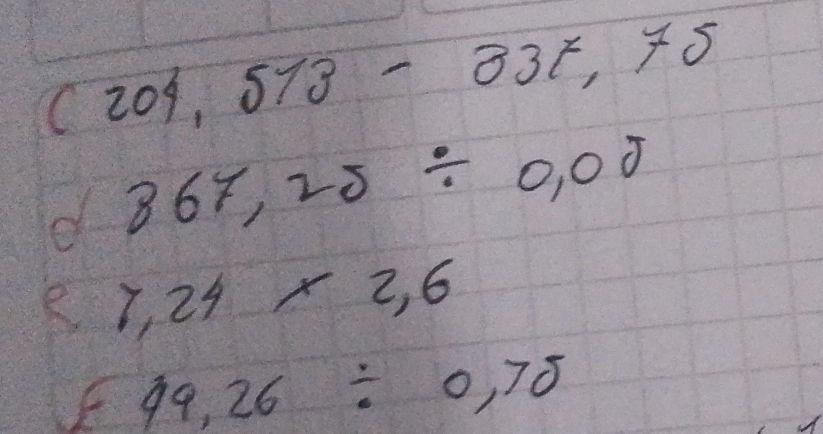 c 204,513 - 337,75
d 367,25 ÷ 0,05
e 7,24 × 2,6
f 99,26 ÷ 0,75